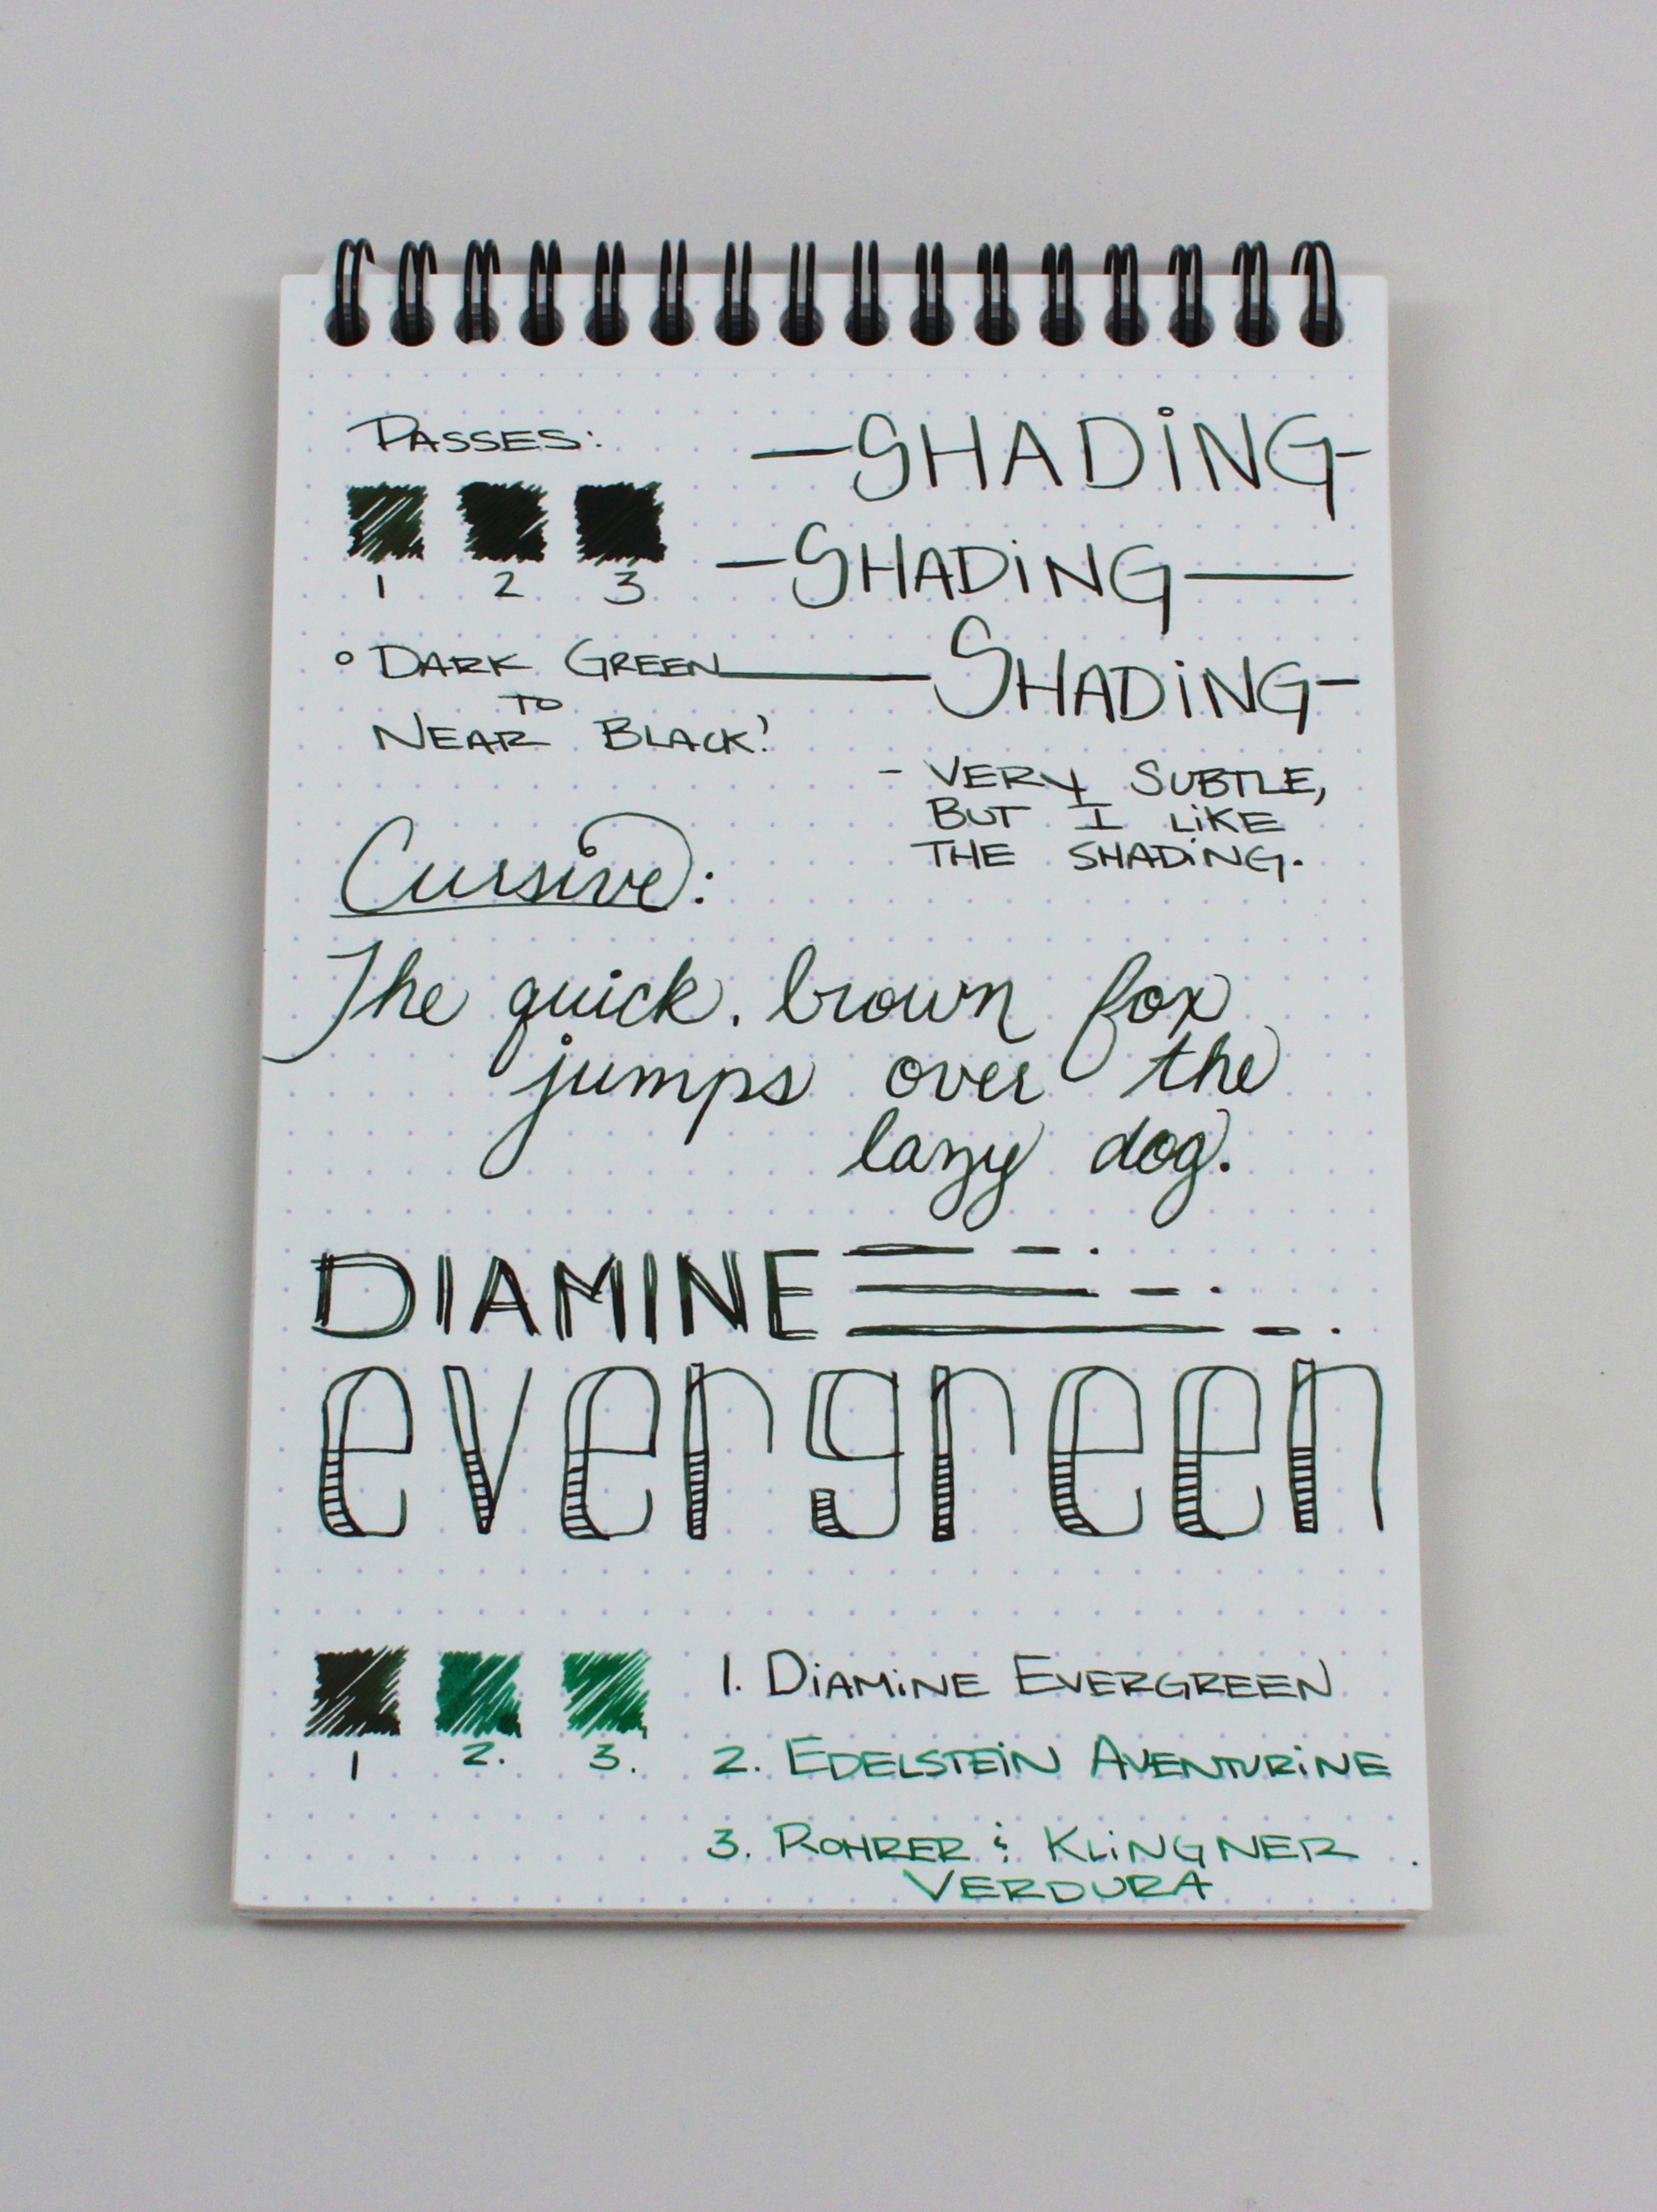 PASSES:
1 2 3
° DARK GREEN
TO
NEAR BLACK!
—SHADiNG-
—SHADiNG—
—SHADiNG-
- VERY SUBTLE,
BUT I LiKE
THE SHADiNG.
Cursive:
The quick, brown fox
jumps over the
lazy dog.
DIAMINE
evergreen
1 2. 3.
1. DiAMiNE EVERGREEN
2. EDELSTEiN AVENTURiNE
3. ROHRER & KLiNGNER
VERDURA